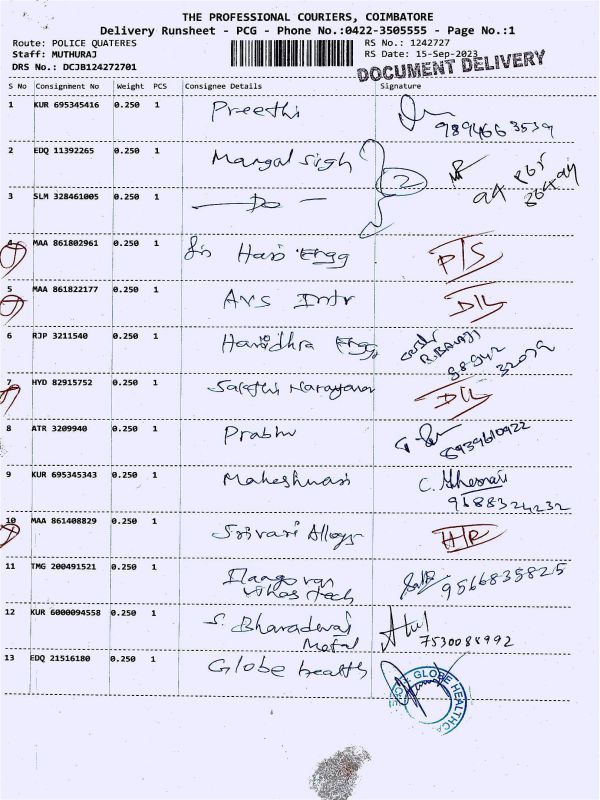 THE PROFESSIONAL COURIERS, COIMBATORE
Delivery Runsheet - PCG - Phone No.:0422-3505555 - Page No.:1
Route: POLICE QUATERES RS No.: 1242727
Staff: MUTHURAJ RS Date: 15-Sep-2023
DRS No.: DCJB124272701 DOCUMENT DELIVERY
S No Consignment No Weight PCS Consignee Details Signature
1 KUR 695345416 0.250 1 Preethi
9894663539
2 EDQ 11392265 0.250 1 Mangal Sigh 2
3 SLM 328461005 0.250 1 — Do —
4 MAA 861802961 0.250 1 Sri Hari Engg P/S
5 MAA 861822177 0.250 1 AVS Intr D/L
6 RJP 3211540 0.250 1 Haridhra Engg R.BALAJI
98942
32079
7 HYD 82915752 0.250 1 Sakthi Narayanan D/L
8 ATR 3209940 0.250 1 Prabhu 6939610922
9 KUR 695345343 0.250 1 Maheshwari C.
9688324232
10 MAA 861408829 0.250 1 Srivari Alloys H/R
11 TMG 200491521 0.250 1 Ilangovan 9566835825
vikas tech
12 KUR 6000094558 0.250 1 S. Bharadwaj Atul
Metal 7530088992
13 EDQ 21516180 0.250 1 Globe health
GLOBE HEALTHCA